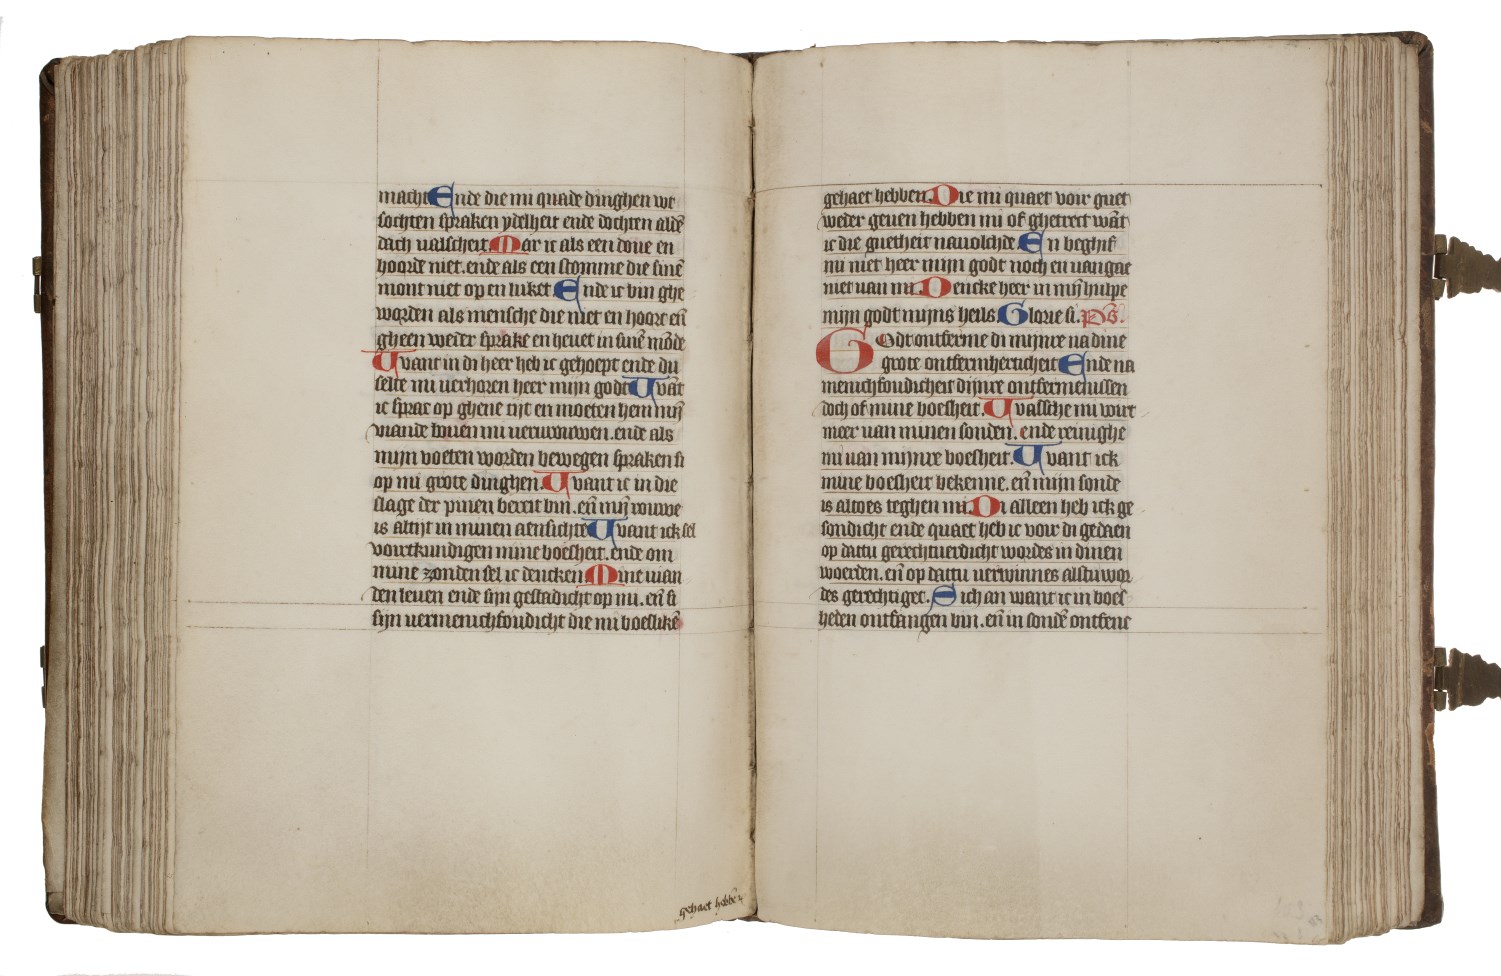 macht Ende die mi quade dinghen we
sochten spraken ydelheit ende dochten aldē
dach valscheit. Mar ic als een doue en
hoorde niet. ende als een stomme die sinē
mont niet op en luket. Ende ic bin ghe
worden als mensche die niet en hoort eñ
gheen weder sprake en heuet in sinē mōde
Want in di heer heb ic gehoept ende du
selte mi verhoren heer mijn godt Wāt
ic sprac op ghene tijt en moeten hem mij
viande bouen mi vervrouwen. ende als
mijn voeten worden bewegen spraken si
op mi grote dinghen. Want ic in die
slage der pinen bereit bin. eñ mij rouwe
is altijt in minen aensichte Want ick sel
voirtkundigen mine boesheit. ende om
mine zonden sel ic dencken Mine vian
den leuen ende sijn gestadicht op mi. eñ si
sijn vermenichfoudicht die mi boeslikē
gehaet hebbē
gehaet hebben. Die mi quaet voir guet
weder geuen hebben mi of ghetrect wāt
ic die guetheit navolchde. En beghif
mi niet heer mijn godt noch en vangae
niet van mi. Dencke heer in mij hulpe
mijn godt mijns heils. Glorie si. Ps.
Godt ontferme di mijnre na dine
grote ontfermherticheit Ende na
menichfoudicheit dijnre ontfermenissen
doch of mine boesheit. Wassche mi wirt
meer van minen sonden. ende reinighe
mi van mijnre boesheit. Want ick
mine boesheit bekenne. eñ mijn sonde
is altoes teghen mi. Di alleen heb ick ge
sondicht ende quaet heb ic voir di gedaen
op dattu gerechtverdicht wordes in dinen
woerden. eñ op dattu verwinnes alstu wor
des gerechtiget. Sich an want ic in boes
heden ontfangen bin. eñ in sondē ontfenc